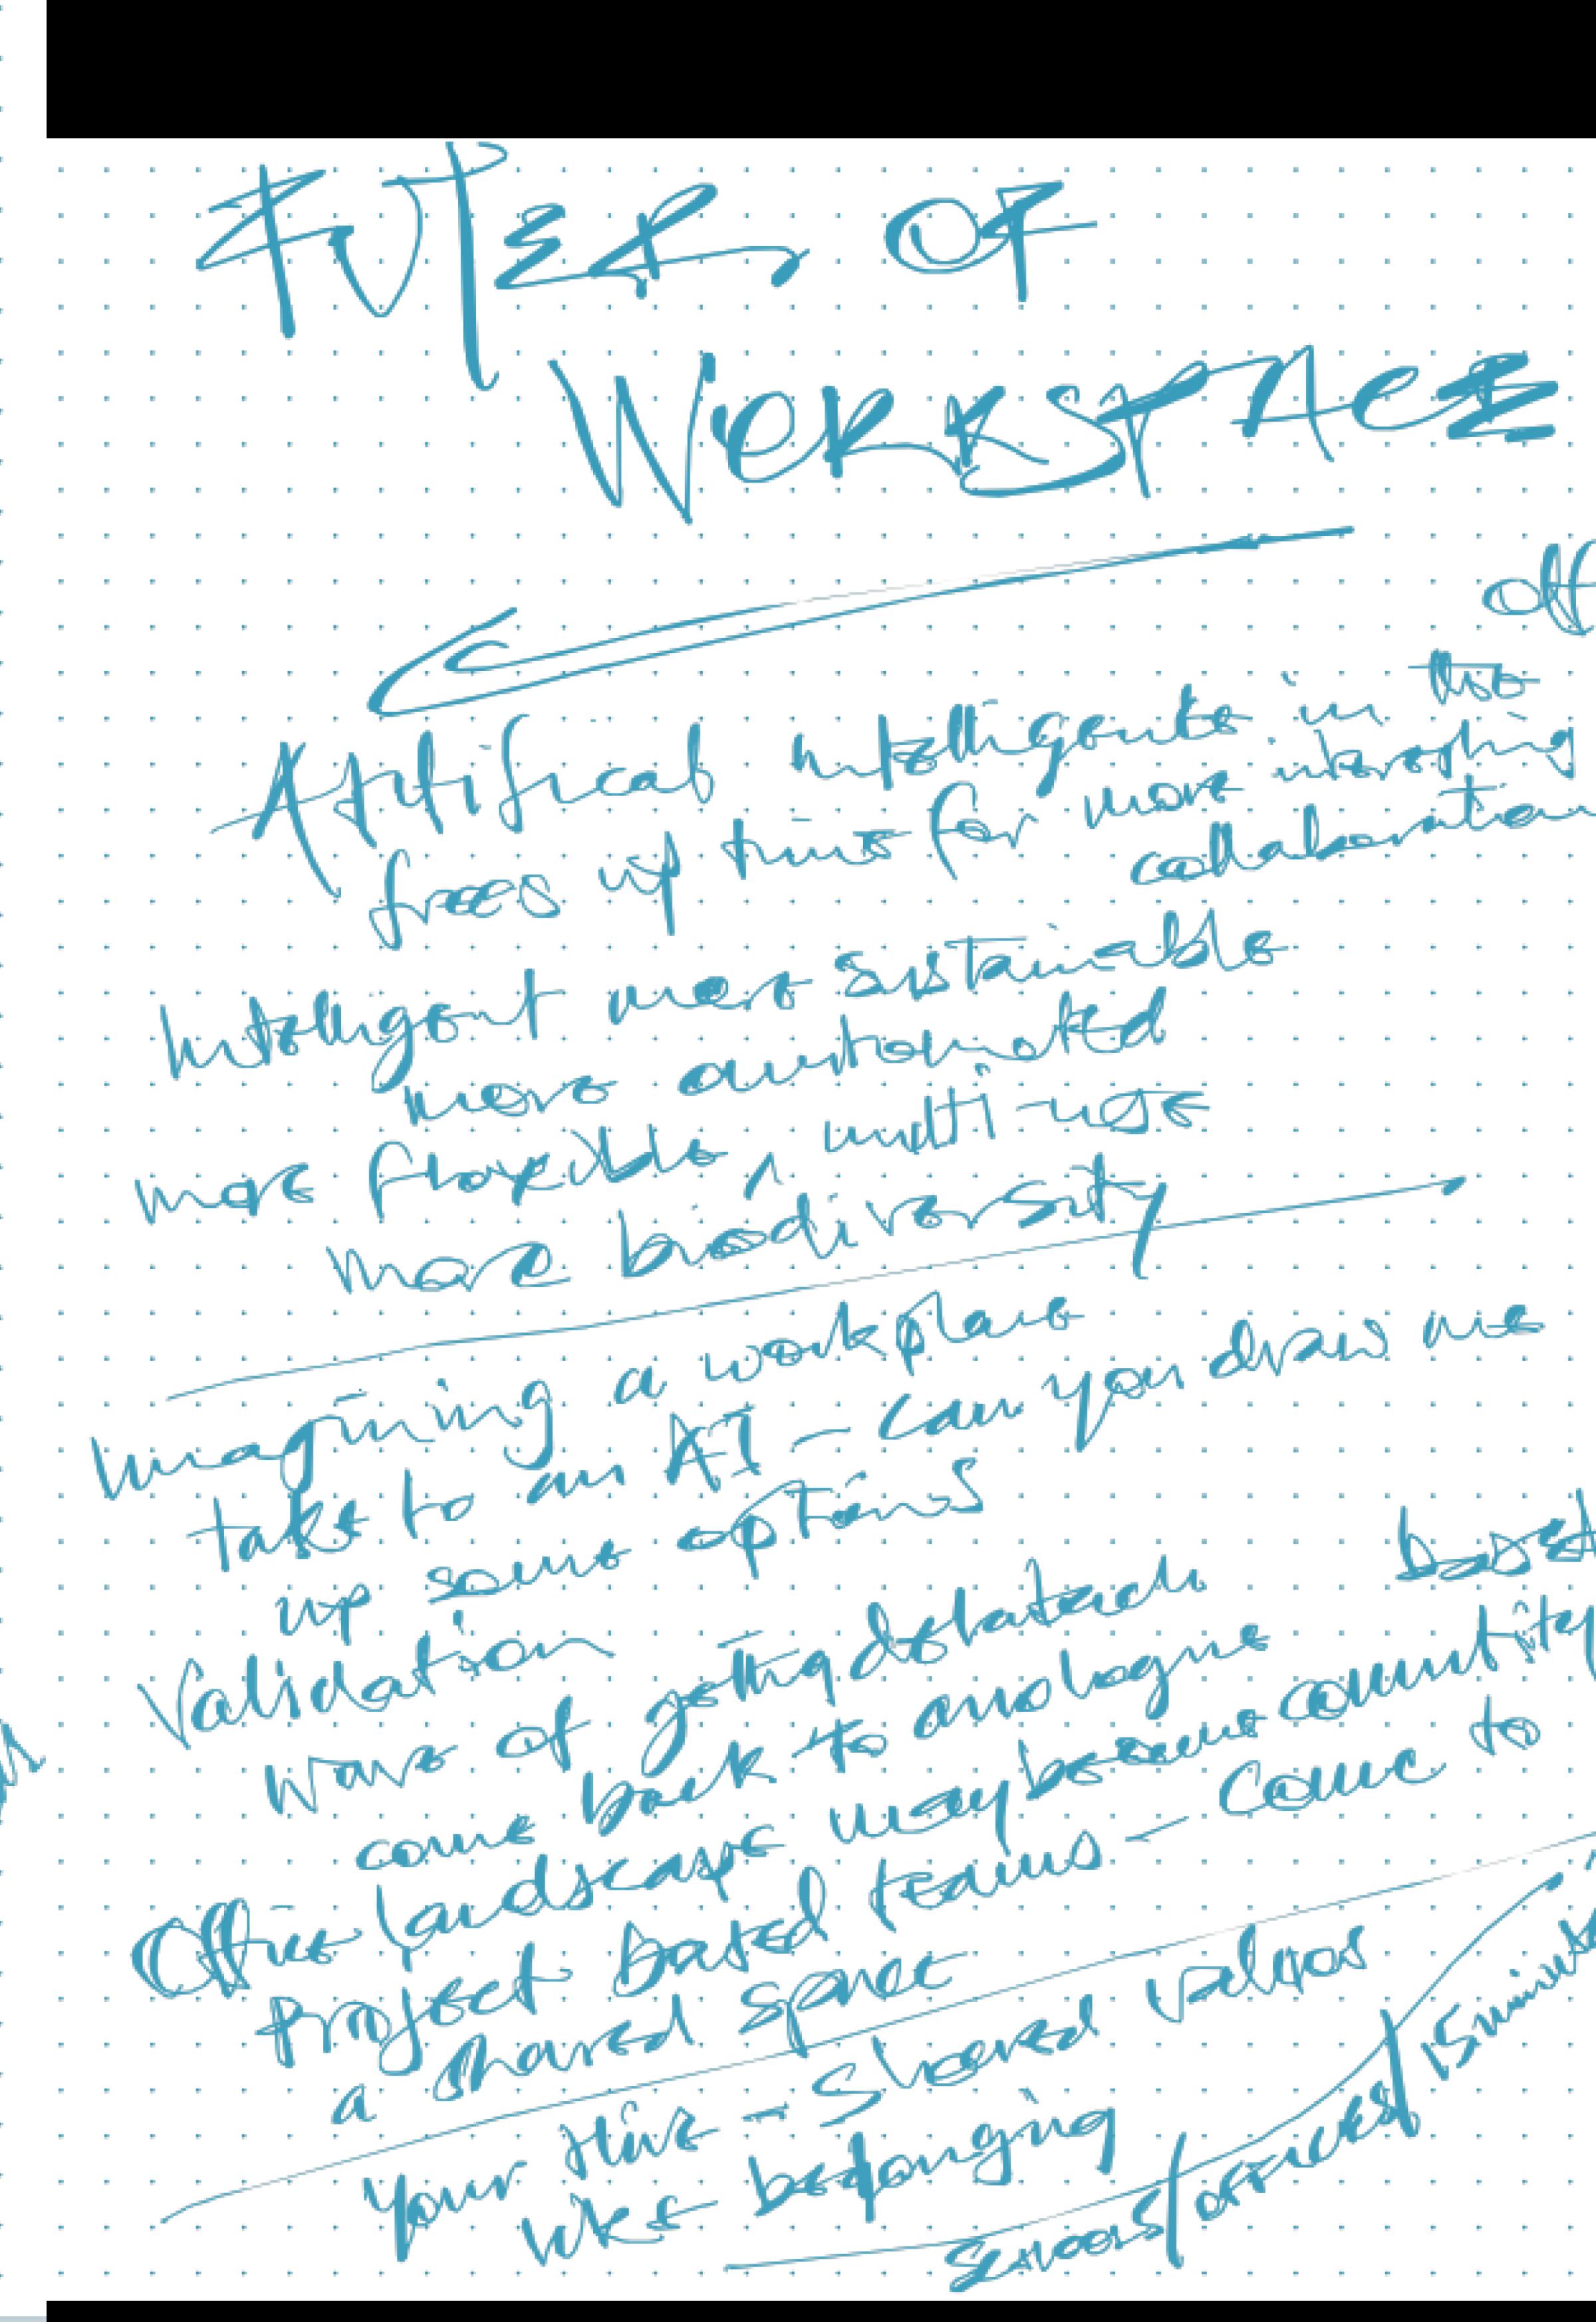 FUTER OF
WORKSPACE
off
Artifical intelligents in the
frees up time for more interesting
collaboration
Intelligent more sustainable
more automated
more flexible, multi-use
more biodiversity
Imagining a workplace
take to an AI - can you draw me
up some options
Validation
wave of getting
based
come back to analogue
Office landscape may become
project based teams - come to
a shared space
Your Hive - Shared values
like belonging
SCHOOLS/OFFICES/15 minute